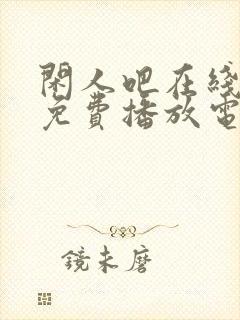 閑人吧在綫
免費播放電
鏡未磨